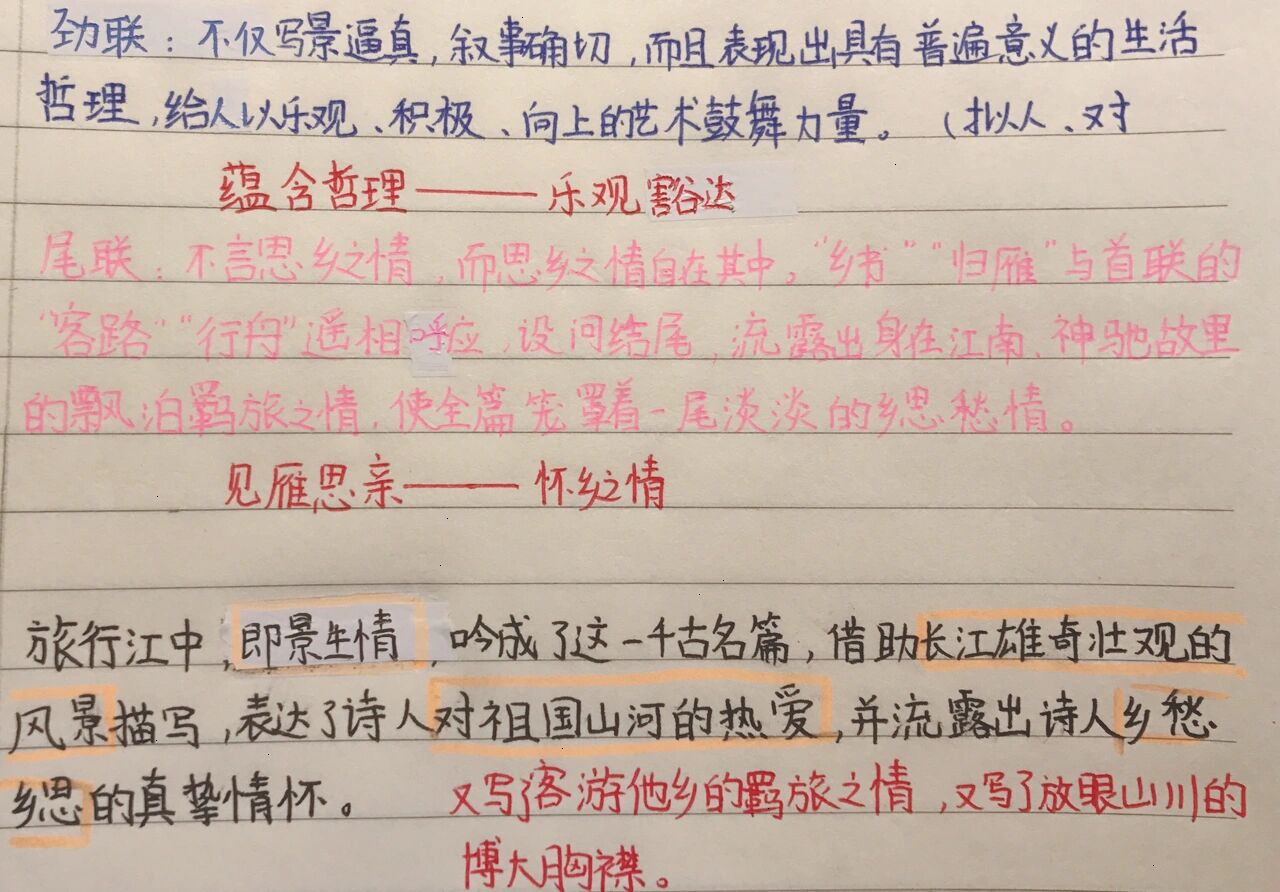 劲联：不仅写景逼真，叙事确切，而且表现出具有普遍意义的生活
哲理，给人以乐观、积极、向上的艺术鼓舞力量。（拟人、对
蕴含哲理——乐观豁达
尾联：不言思乡之情，而思乡之情自在其中。“乡书”“归雁”与首联的
“客路”“行舟”遥相呼应，设问结尾，流露出身在江南、神驰故里
的飘泊羁旅之情，使全篇笼罩着一尾淡淡的乡思愁情。
见雁思亲——怀乡之情
旅行江中，即景生情，吟成了这一千古名篇，借助长江雄奇壮观的
风景描写，表达了诗人对祖国山河的热爱，并流露出诗人乡愁
乡思的真挚情怀。 又写了客游他乡的羁旅之情，又写了放眼山川的
博大胸襟。